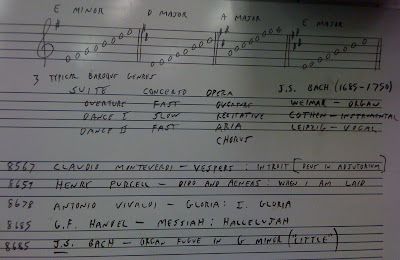 E MINOR D MAJOR A MAJOR E MAJOR
3 TYPICAL BAROQUE GENRES
SUITE CONCERTO OPERA J.S. BACH (1685-1750)
OVERTURE FAST OVERTURE WEIMAR - ORGAN
DANCE I SLOW RECITATIVE COTHEN - INSTRUMENTAL
DANCE II FAST ARIA LEIPZIG - VOCAL
CHORUS
8567 CLAUDIO MONTEVERDI - VESPERS: INTROIT [DEUS IN ADIUTORIUM]
8659 HENRY PURCELL - DIDO AND AENEAS: WHEN I AM LAID
8678 ANTONIO VIVALDI - GLORIA: I. GLORIA
8685 G.F. HANDEL - MESSIAH: HALLELUJAH
8685 J.S. BACH - ORGAN FUGUE IN G MINOR ("LITTLE")